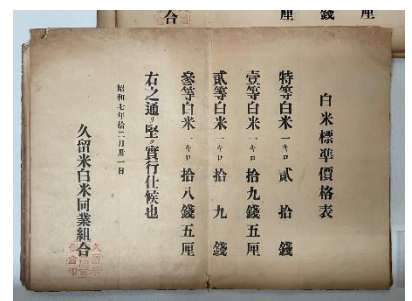 厘
錢
厘
合
白米標準價格表
特等白米一キロ貳拾錢
壹等白米一キロ拾九錢五厘
貳等白米一キロ拾九錢
參等白米一キロ拾八錢五厘
右之通リ堅ク實行仕候也
昭和七年拾二月卅一日
久留米白米同業組合